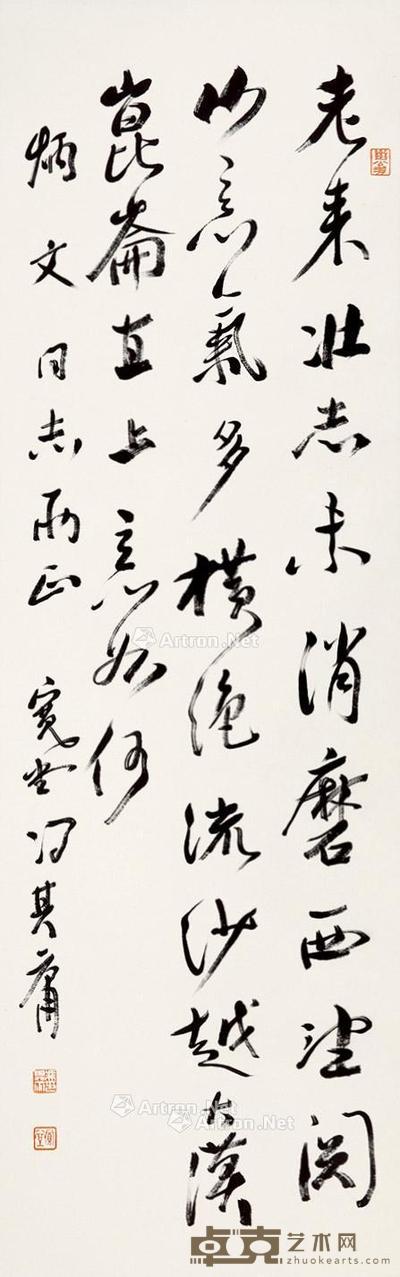 老来壮志未消磨西望関
山意氣多横绝流沙越大漠
崑崙直上意如何
炳文同志两正 宽堂冯其庸
Artron.Net
Artron.Net
Artron.Net
卓克艺术网
zhuokearts.com